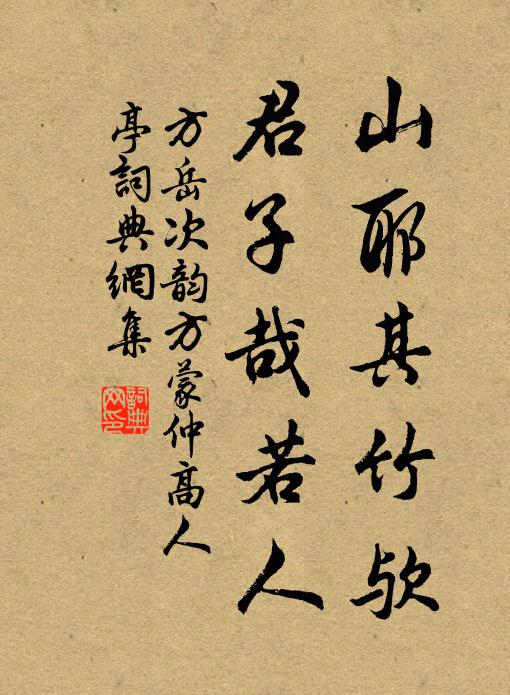 山耶其竹欤
君子哉若人
方岳次韵方蒙仲高人
亭詞典網集
詞典網印